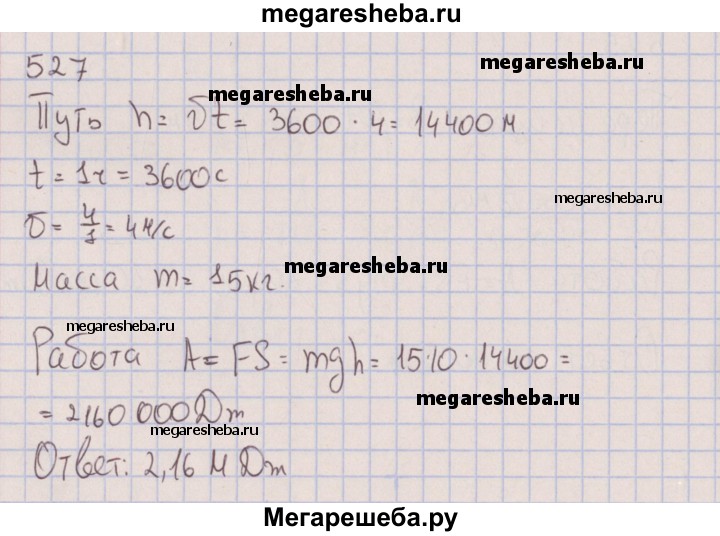 megaresheba.ru
527
megaresheba.ru
megaresheba.ru
Путь h = υt = 3600 · 4 = 14400 м
t = 1ч = 3600с
megaresheba.ru
υ = 4/1 = 4 м/с
megaresheba.ru
Масса m = 15кг.
megaresheba.ru
Работа A = FS = mgh = 15·10·14400 =
megaresheba.ru
= 2160 000 Дж
megaresheba.ru
Ответ: 2,16 М Дж
Мегарешеба.ру